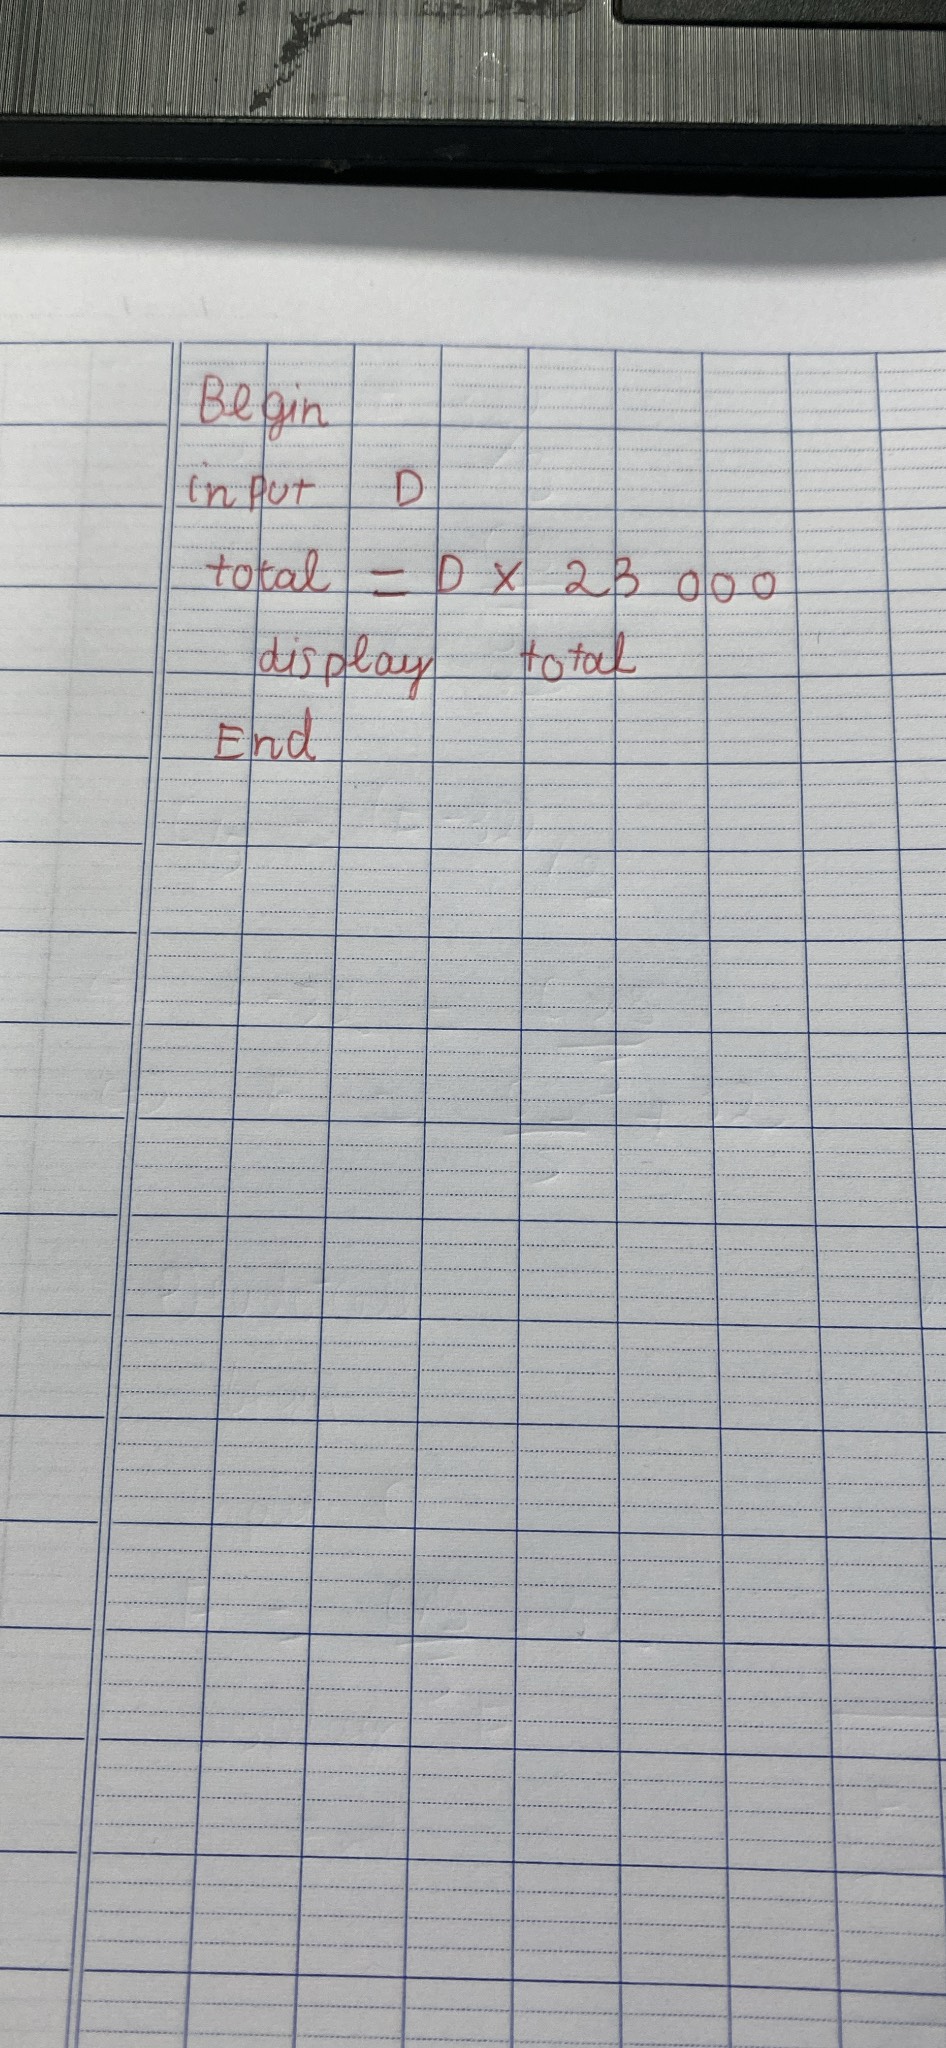 Begin
input D
total = D x 23 000
display total
End